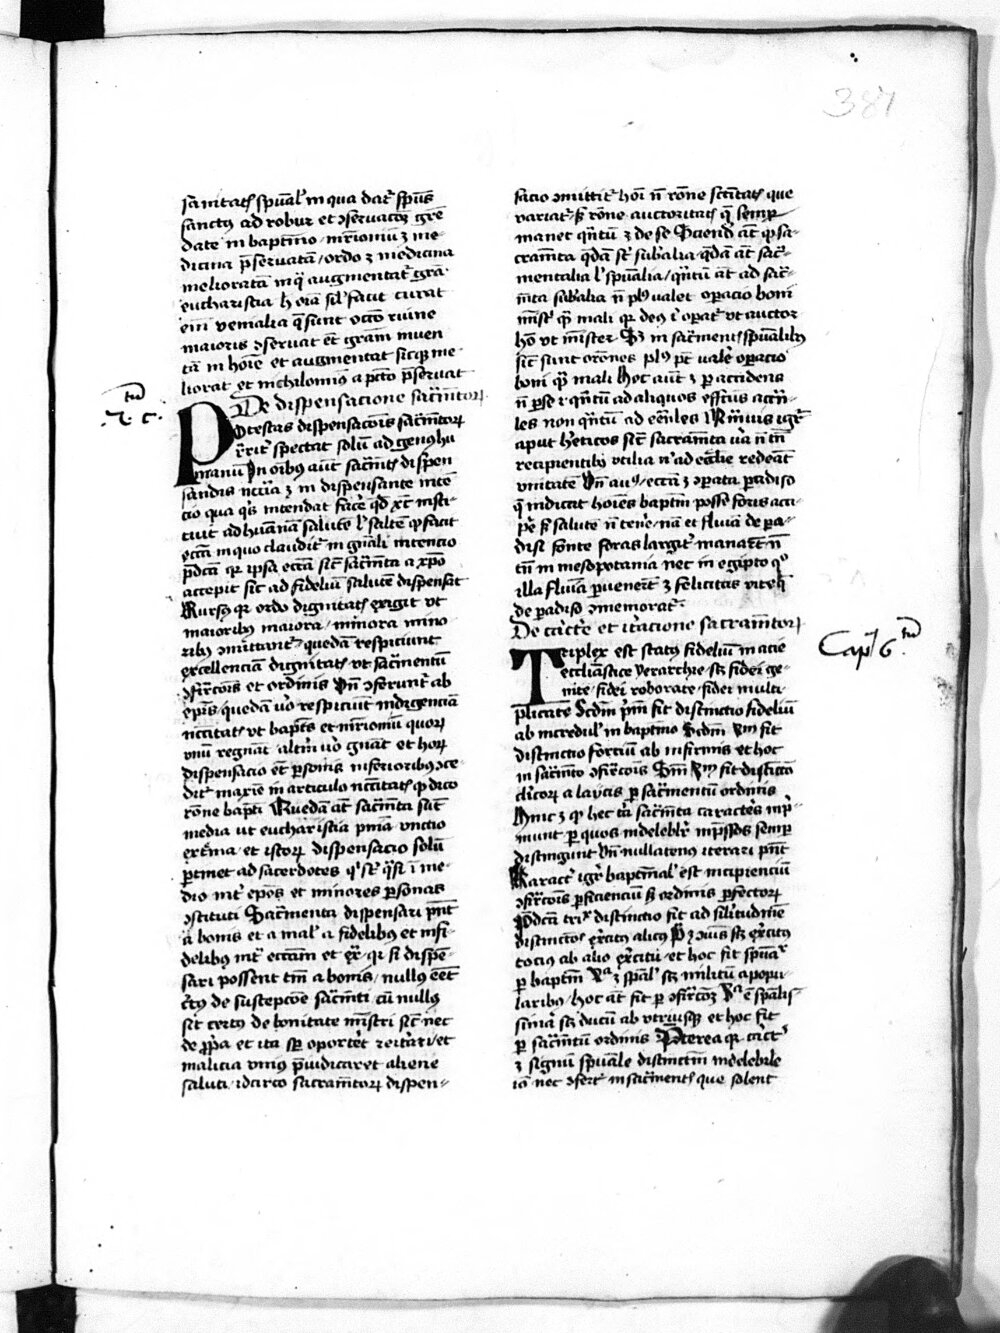 387
sanitatẽ spũalẽ in qua datr̃ sp̃us
sanctus ad robur et ꝯseruacõꝫ grẽ
date in baptismo mr̃imoniũ ꝫ me
dicina p̃seruatiã / ordo ꝫ medicina
melioratiã in q̃ augmentatr̃ grã
eucharistia h̃ oĩa sil̃ facit curat
eni venialia q̃ sunt occo ruine
maioris ꝯseruat et̃ grãm inuen
tã in hoĩe et augmentat sicqꝫ me
liorat et nichilominꝰ a pctõ p̃seruat
De dispensacione sacr̃mtoꝝ
.5. c.
Potestas dispensacõis sacr̃mtoꝝ
spectat solũ ad genus hu
manũ In oĩbus aũt sacr̃mtis dispen
sandis nccĩa ꝫ in dispensante inten
cio qua qͥs intendat facẽ qd xp̃c insti
tuit ad hũanã salutẽ l̃ saltẽ qd facit
ecc̃a in quo claudit̃ in gñali intencio
p̃dc̃a qr ipsa ecc̃a sic̃ sacr̃mta a xp̃o
accepit sic̃ ad fideliũ salutẽ dispensat
Rursus qr ordo dignitatis exigit vt
maioribus maiora / minora mino
ribꝰ ꝯmittant̃ quedã respiciunt
excellenciam dignitatis vt sacr̃mentũ
ꝯfirc̃ois et ordinis vñ ꝯferunt̃ ab
ep̃is quedã vo respiciũt indigenciã
nccitatis vt baptis et mr̃imoniũ quoꝝ
vnũ regñat altm̃ vo gñat et hoꝝ
dispensacio et̃ p̃sonis inferioribꝰ ꝯce
dit̃ maxie in articulo nccitatis qd dico
rõne bap̃ti Quedã aũt sacr̃mta sũt
media ut eucharistia pn̄ia vnctio
extr̃ema et istoꝝ dispensacio solũ
p̃tinet ad sacerdotes qͥ st̃ qͣsi ĩ me
dio int̃ ep̃os et minores p̃sonas
ꝯstituti Sacr̃menta dispensari pñt
a bonis et a mal̃ a fidelibꝰ et infi
delibꝰ int̃ ecc̃am et ex̃ qr si dispẽ
sari possent tm̃ a bonis / nullꝰ eẽt
c̃tꝰ de suscepcõe sacr̃mti cũ nullꝰ
sit certꝰ de bonitate mĩstri sic̃ nec
de p̃pa et ita sp̃ oportet̃ reit̃ari et
malicia vniꝰ p̃iudicaret aliene
saluti / idcirco sacram̃toꝝ dispen-
sacio ꝯmittit̃ hoĩ ñ rõne sc̃itatis que
variat̃ sꝫ rõne auctoritatis q̃ semp̃
manet qñtũ ꝫ de se Sciend̃ aũt qd sa-
cram̃ta qd̃a st̃ sub̃alia qd̃a aũt sacr̃-
mentalia l̃ spũalia / qñtũ aũt ad sacr̃-
mta sub̃alia ñ plꝰ valet oꝑacio boni
mĩstri qͣ mali qr deꝰ ĩ oꝑat̃ vt auctor
hõ vt minister Sꝫ in sacr̃mentis spũalibꝰ
sic̃ sunt orõnes plꝰ pt̃ valẽ oꝑacio
boni qͣ mali Hoc aũt ꝫ ꝑ accidens
ñ ꝑ se / qñtũ ad aliquos effc̃us accñ-
les non qñtũ ad eẽñles Quãuis igr̃
aput h̃eticos sic̃ sacram̃ta v̾a ñ tñ
recipientibꝰ vtilia n̾ ad ecc̃lie redeãt
vnitatẽ Vñ auꝰ / ecc̃ia ꝫ ꝯꝑata ꝑadiso
q̃ indicat hoĩes baptm̃ posse foris acci-
ꝑe sꝫ salutẽ ñ tenẽ nã et fluuiã de ꝑa-
disi fonte foras largit̃ manaret̃ ñ
tñ in mesopotania nec in egipto qͦ
illa flũia ꝑuenert̃ ꝫ felicitas vite q̃
de ꝑadiso ꝯmemorat̃
De car̾ct̾e et it̾acione sacram̃toꝝ
Capl 6.
Triplex est status fideliũ in acie
eccl̃iastice yerarchie sꝫ fidei ge-
nite / fidei roborate / fidei multi
plicate Scd̃m pͥm fit distinctio fideliũ
ab incredul̃ in baptismo Scd̃m 2m fit
distinctio forciũ ab infirmis et hoc
in sacr̃mto ꝯfirc̃ois Scd̃m 3m fit distictio
cl̃icoꝝ a laycis ꝑ sacr̃mentũ ordinis
Hinc ꝫ qd hec tͥa sacr̃mta caract̾es inp̾-
munt ꝑ quos indelebl̃r inp̃ssos semp̃
distingunt Vñ nullatenus iterari pñt
Karact̾ igr̃ baptismal̃ est incipienciũ
ꝯfirc̃ois ꝓficienciũ sꝫ ordinis ꝑfectoꝝ
Pd̃c̃a tͥx distinctio fit ad sil̃itudinẽ
distinctõis ex̾citꝰ alicuiꝰ Pͣ ꝫ ciuis sꝫ ex̾citꝰ
tociꝰ ab alio ex̾citu et hoc fit spũal̃r
ꝑ baptm̃ 2a ꝫ spũal̃ sꝫ militũ a popu
laribꝰ / hoc aũt fit ꝑ ꝯfirc̃oꝫ 3a ẽ spũalis-
sima sꝫ ducũ ab vtriusqꝫ et hoc fit
ꝑ sacr̃mtũ ordinis Pterea qr car̾ct̾
ꝫ signũ spũale distinctiũ indelebile
iõ nec ꝯfert̃ in sacr̃mentis que solent